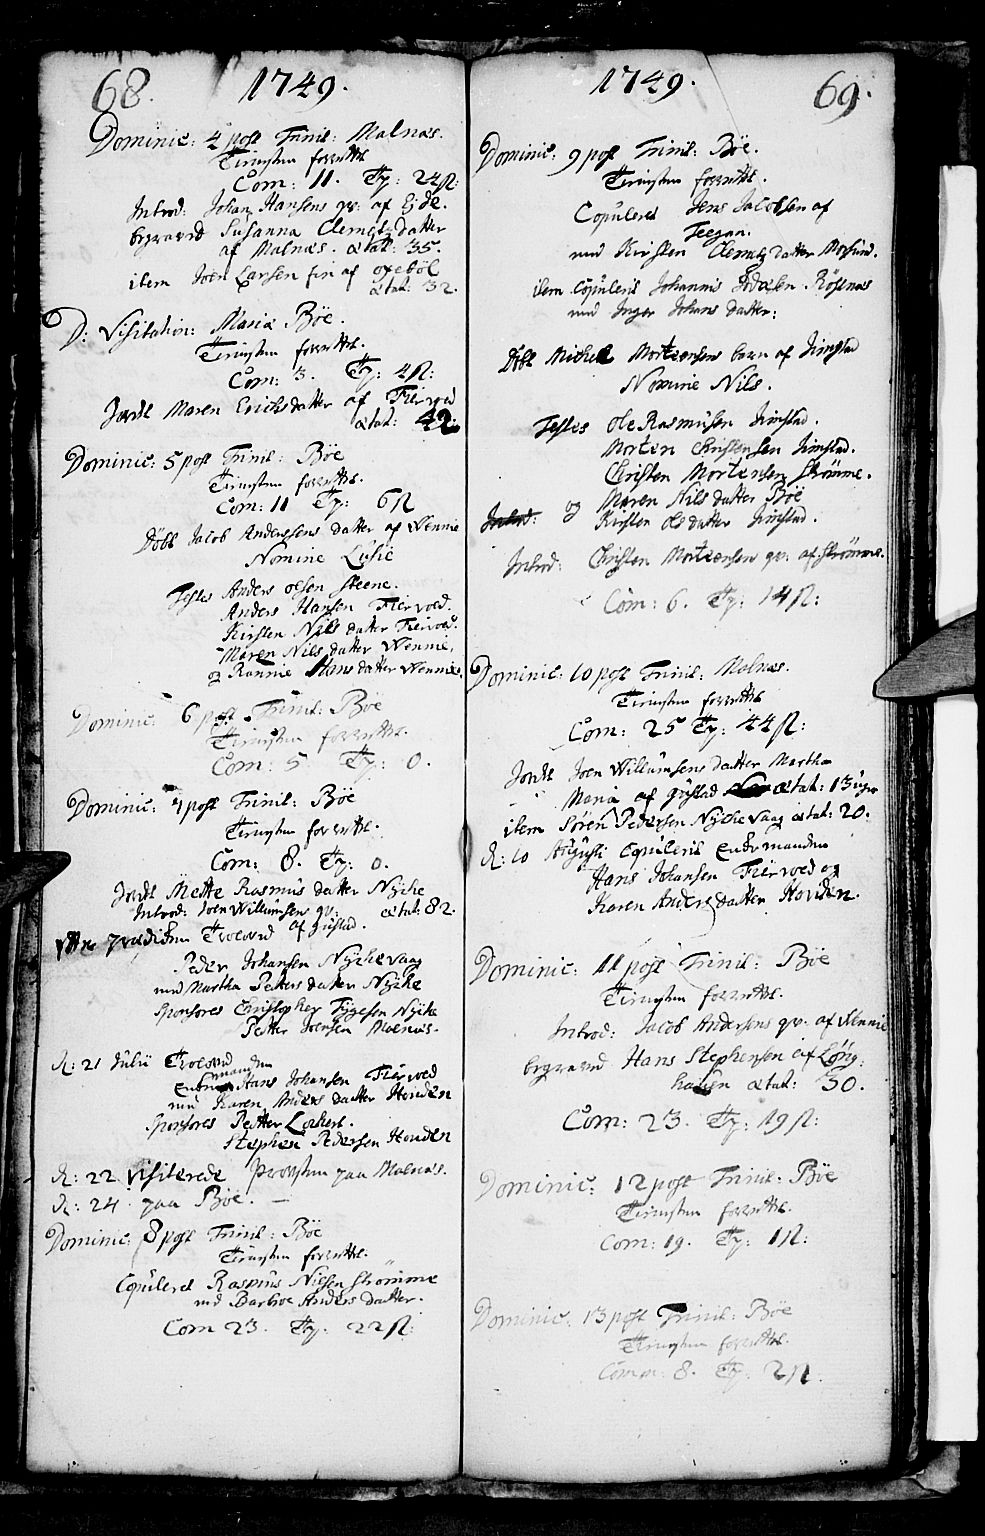 68.
1749.
Dominic: 4 post Trinit: Malnæs.
Tienesten forrettet
Com: 11. Tf: 24 β:
Introd: Johan Hansens qv: af Ejde.
begraved Susanna Clemetzdatter
af Malnæs. ætat: 35.
item Joen Larsen fin af oxebøl
ætat: 32.
D: Visitation: Maria Böe.
Tienesten forrettet.
Com: 3. Tf: 4 β:
Jordet Maren Erichsdatter af Fiervoed
ætat: 42.
Dominic: 5 post Trinit: Böe
Tienesten forrettet.
Com: 11 Tf: 6 β
Döbt Jacob Anderssens datter af Wennie
Nomine Lusie
Testes Anders olsen steene.
Anders Hansen Fiervoed.
Kirsten Nils datter Fiervoed.
Maren Nils datter Wennie,
og Rannie Hans datter Wennie.
Dominic: 6 post Trinit: Böe
Tienesten forrettet.
Com: 5 Tf: 0.
Dominic: 7 post Trinit: Böe
Tienesten forrettet.
Com: 8. Tf: 0.
Jordet Mette Rasmus datter Nyche
ætat: 82.
Introd: Joen Willumsen qv:
af Gustad.
Peder Johansen Nyche vaag
med Martha Petters datter Nyche
Sponsores Christopher Tygesen Nyche
Petter Joensen Malnæs.
D: 21 Julii Troloved
Enkemanden Hans Johansen Fiervoed
med Karen Anders datter Hovden
Sponsores Petter Lockert.
Stephen Pedersen Hovden
D: 22 visiterede Provsten paa Malnæs.
D: 24 paa Böe.
Dominic: 8 post Trinit: Böe
Tienesten forrettet.
Copulered Rasmus Nilsen strömme
med Barbroe Anders datter.
Com 23. Tf: 22 β:
1749.
69.
Dominic: 9 post Trinit: Böe.
Tienesten forrettet.
Copulered Jens Jacobsen af
med Kirsten Clemetz datter
item Copulerit Johannis
med Inger Johans datter:
Döbt Michel Mortensens barn af Jimstad
Nomine Nils.
Testes Ole Rasmusen Jimstad.
Morten Christensen Jimstad.
Christen Mortensen Strömme.
Maren Nils datter Böe
Introd: og Kirsten ols datter Jimstad.
Introd: Christen Mortensen qv: af Strömme.
Com: 6. Tf: 14 β:
Dominic: 10 post Trinit: Malnæs.
Tienesten forrettet
Com: 25 Tf: 44 β:
Jordet Joen Willumsens datter Martha
Maria af Gustad ætat: 13 uger
item Sören Pedersen Nyche vaag ætat: 20.
D: 10 Augusti Copulerit Enkemanden
Hans Johansen Fiervoed og
Karen Anders datter Hovden.
Dominic: 11 post Trinit: Böe
Tienesten forrettet.
Introd: Jacob Andersens qv: af Vennie
begraved Hans Stephensen af
ætat: 30.
Com: 23. Tf: 19 β:
Dominic: 12 post Trinit: Böe
Tienesten forrettet.
Com: 19. Tf: 1 β:
Dominic: 13 post Trinit: Böe
Tienesten forrettet.
Comm: 8. Tf: 2 β.